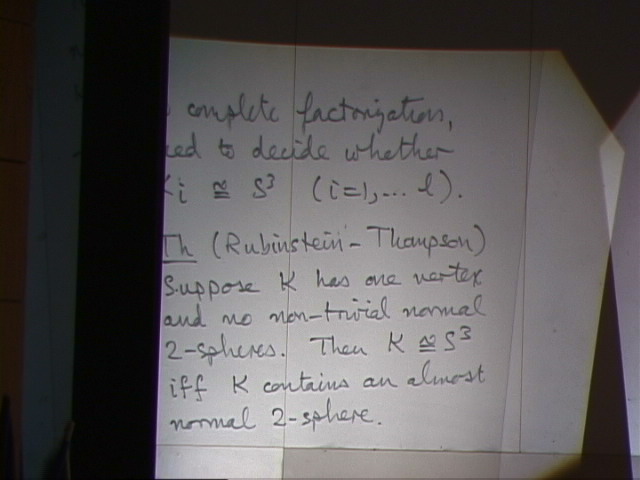 complete factorization,
to decide whether
i ≅ S³ (i=1,... l).
Th (Rubinstein - Thompson)
Suppose K has one vertex
and no non-trivial normal
2-spheres. Then K ≅ S³
iff K contains an almost
normal 2-sphere.